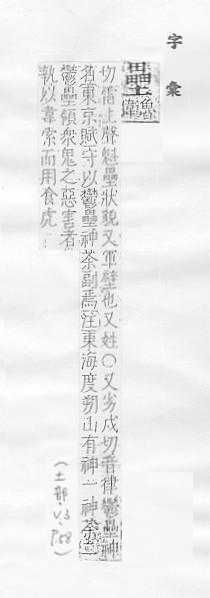 字彙
壘 魯偉
切雷上聲魁壘狀貌又軍壁也又姓○又劣戌切音律鬱壘神
名東京賦守以鬱壘神荼副焉注東海度朔山有神一神荼二
鬱壘領衆鬼之惡害者
執以葦索而用食虎:
(土部、V3、P.58)